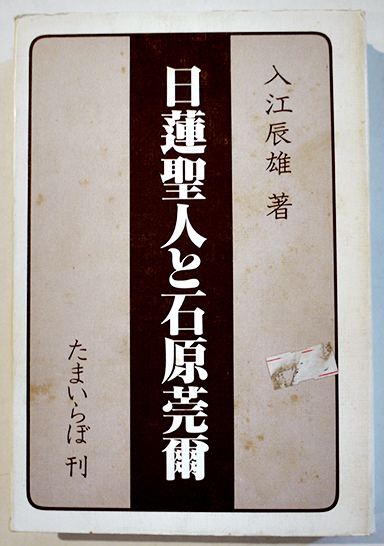 入江辰雄 著
日蓮聖人と石原莞爾
たまいらぼ 刊